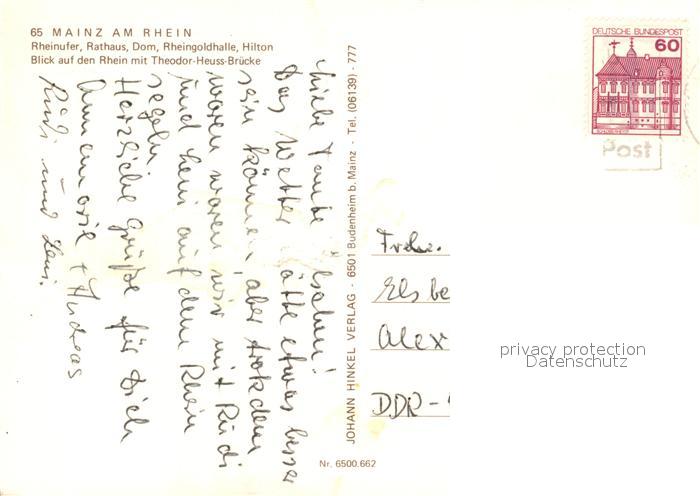 65 MAINZ AM RHEIN
Rheinufer, Rathaus, Dom, Rheingoldhalle, Hilton
Blick auf den Rhein mit Theodor-Heuss-Brücke
Liebe Tante
Das Wetter hätte etwas besser
sein können, aber trotzdem
waren waren wir mit Rudi
und Leni auf dem Rhein
segeln
Herzliche Grüße für Dich
Annemarie + Andreas
Rudi und Leni.
JOHANN HINKEL VERLAG - 6501 Budenheim b. Mainz - Tel. (06139) - 777
Nr. 6500.662
DEUTSCHE BUNDESPOST
60
Post
Elsbe
Alex
DDR -
privacy protection
Datenschutz